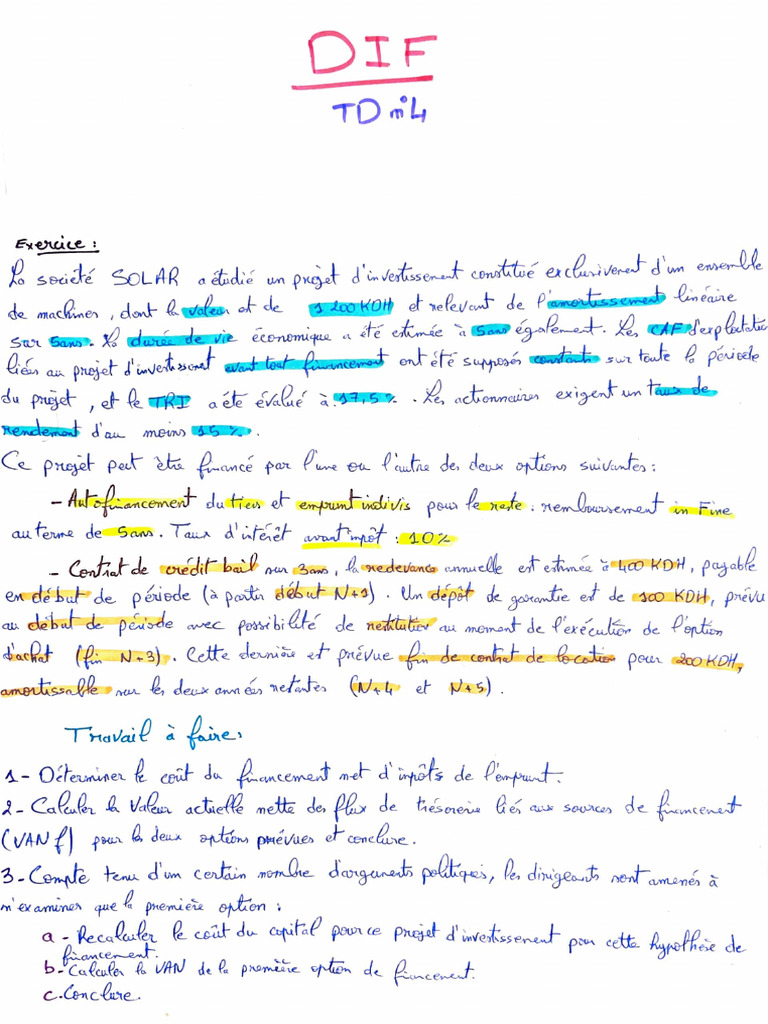 DIF
TD n°4
Exercice :
La société SOLAR a étudié un projet d'investissement constitué exclusivement d'un ensemble
de machines, dont la valeur et de 1 200 KDH et relevant de l'amortissement linéaire
sur 5ans. La durée de vie économique a été estimée à 5ans également. Les CAF d'exploitation
liées au projet d'investissement avant tout financement ont été supposés constants sur toute la période
du projet, et le TRI a été évalué à 17,5%. Les actionnaires exigent un taux de
rendement d'au moins 15%.
Ce projet peut être financé par l'une ou l'autre des deux options suivantes :
- Autofinancement du tiers et emprunt indivis pour le reste : remboursement in Fine
au terme de 5ans. Taux d'intérêt avant impôt : 10%
- Contrat de crédit bail sur 3ans, la redevance annuelle est estimée à 400 KDH, payable
en début de période (à partir début N+1). Un dépôt de garantie est de 100 KDH, prévu
au début de période avec possibilité de restitution au moment de l'exécution de l'option
d'achat (fin N+3). Cette dernière et prévue fin de contrat de location pour 200 KDH,
amortissable sur les deux années restantes (N+4 et N+5).
Travail à faire :
1- Déterminer le coût du financement net d'impôts de l'emprunt.
2- Calculer la Valeur actuelle nette des flux de trésorerie liés aux sources de financement
(VAN f) pour les deux options prévues et conclure.
3- Compte tenu d'un certain nombre d'arguments politiques, les dirigeants sont amenés à
n'examiner que la première option :
a - Recalculer le coût du capital pour ce projet d'investissement pour cette hypothèse de
financement.
b- Calculer la VAN de la première option de financement.
c. Conclure.